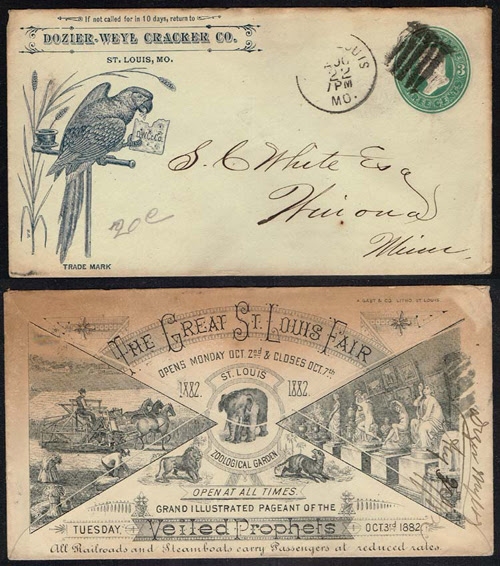 If not called for in 10 days, return to
DOZIER-WEYL CRACKER CO.
ST. LOUIS, MO.
D.W.C.Co.
TRADE MARK
20c
LOUIS
AUG
22
7PM
MO.
THREE CENTS
3
S. C White Esq
Winona
Minn
A. GAST & CO. LITHO. ST. LOUIS
THE GREAT ST. LOUIS FAIR
OPENS MONDAY OCT 2nd & CLOSES OCT. 7th
1882.
ST. LOUIS
1882.
ZOOLOGICAL GARDEN
OPEN AT ALL TIMES.
GRAND ILLUSTRATED PAGEANT OF THE
TUESDAY, Veiled Prophets OCT 3rd 1882
All Railroads and Steamboats carry Passengers at reduced rates.